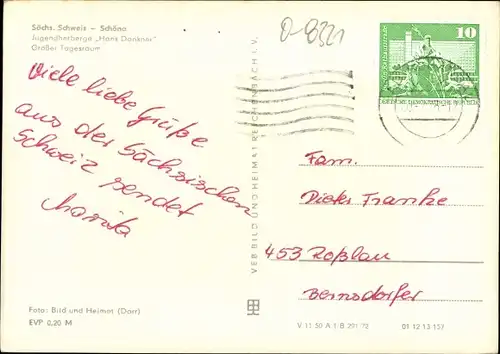 Sächs. Schweiz – Schöna
Jugendherberge „Hans Dankner"
Großer Tagesraum
D-8321
10
Viele liebe Grüße
aus der Sächsischen
Schweiz sendet
VEB BILD UND HEIMAT REICHENBACH I. V.
Fam.
Dieter Franke
453 Roßlau
Bernsdorfer
Foto: Bild und Heimat (Darr)
EVP 0,20 M
V 11 50 A 1 B 291/72 01 12 13 157